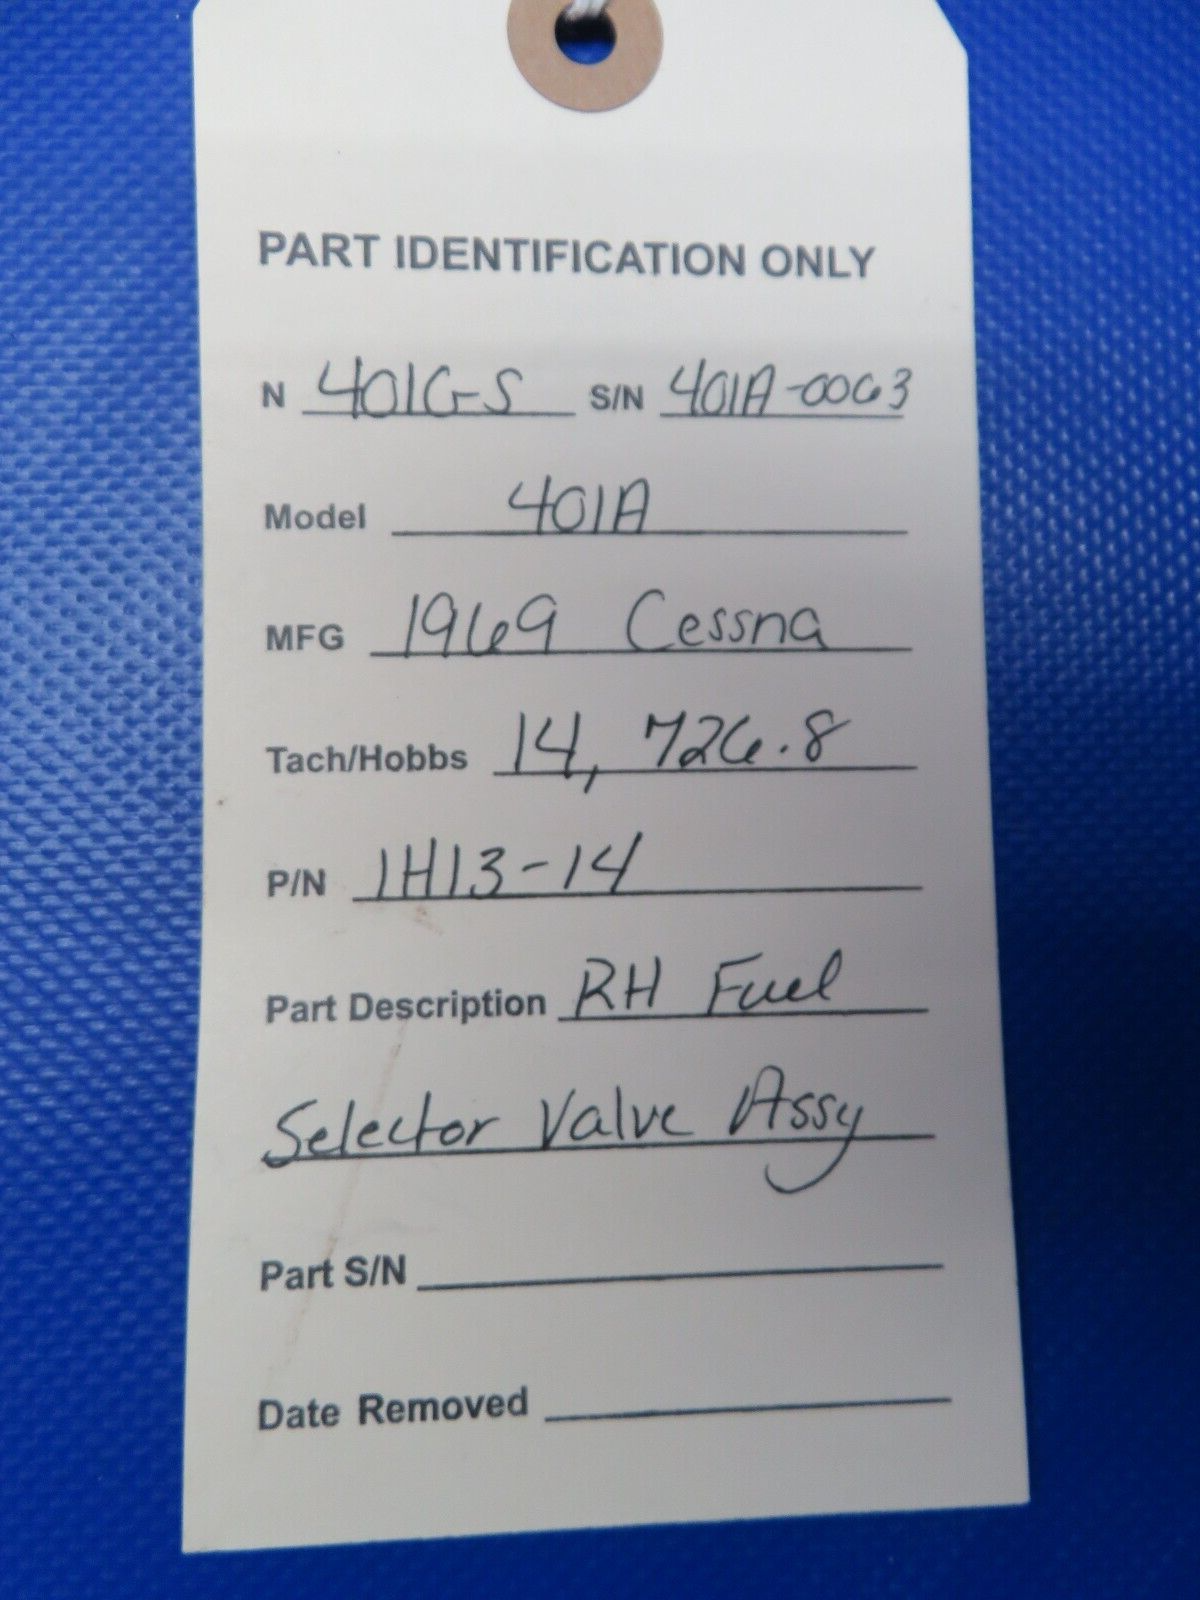 PART IDENTIFICATION ONLY
N 401GS S/N 401A-0063
Model 401A
MFG 1969 Cessna
Tach/Hobbs 14,726.8
P/N 1H13-14
Part Description RH Fuel
Selector Valve Assy
Part S/N
Date Removed